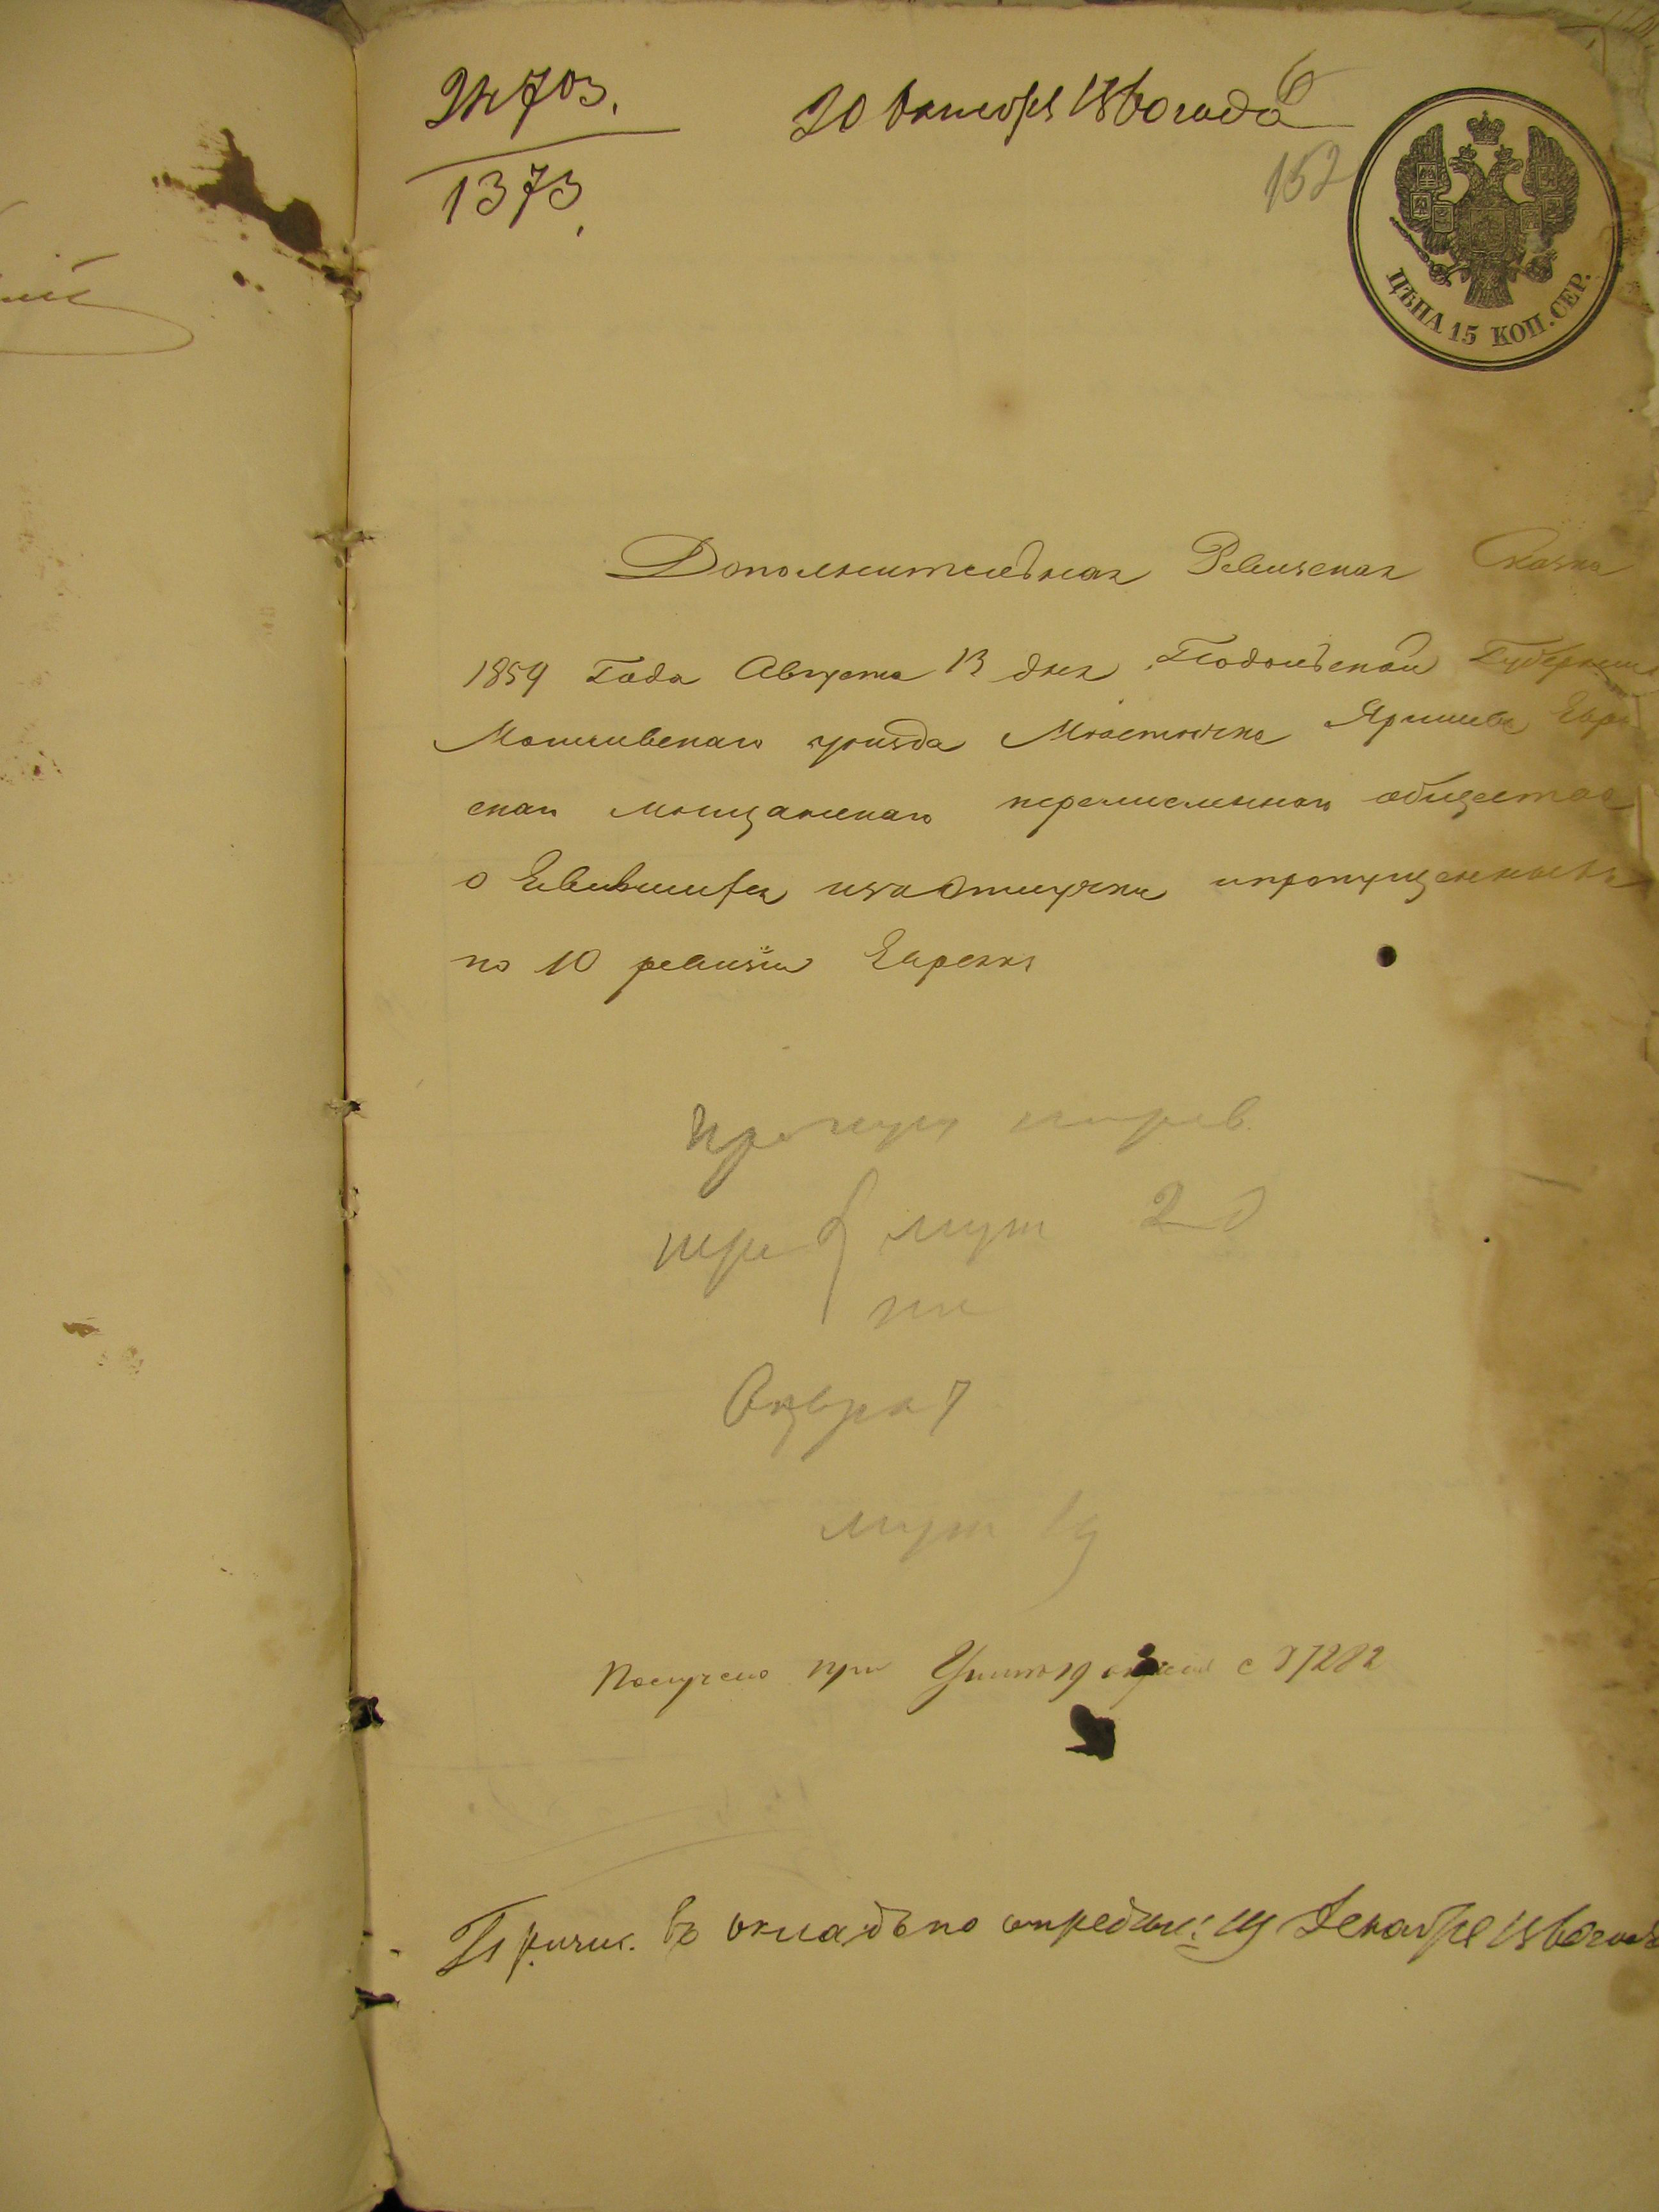 24703.
1373.
20 Октября 1860 года
6
152
ЦѢНА 15 КОП. СЕР.
Дополнительная Ревизская Сказка
1859 Года Августа 13 дня Подольской Губернии
Могилевскаго уѣзда Мѣстечка Яришева Еврей
скаго мѣщанскаго перечисленнаго общества
о Евившихся изъ отлучки и пропущенныхъ
по 10 ревизіи Евреяхъ
муж 2 д
муж 1 д
Получено при
Причис. въ окладъ по опредѣл: 19 Декабря 1860 года